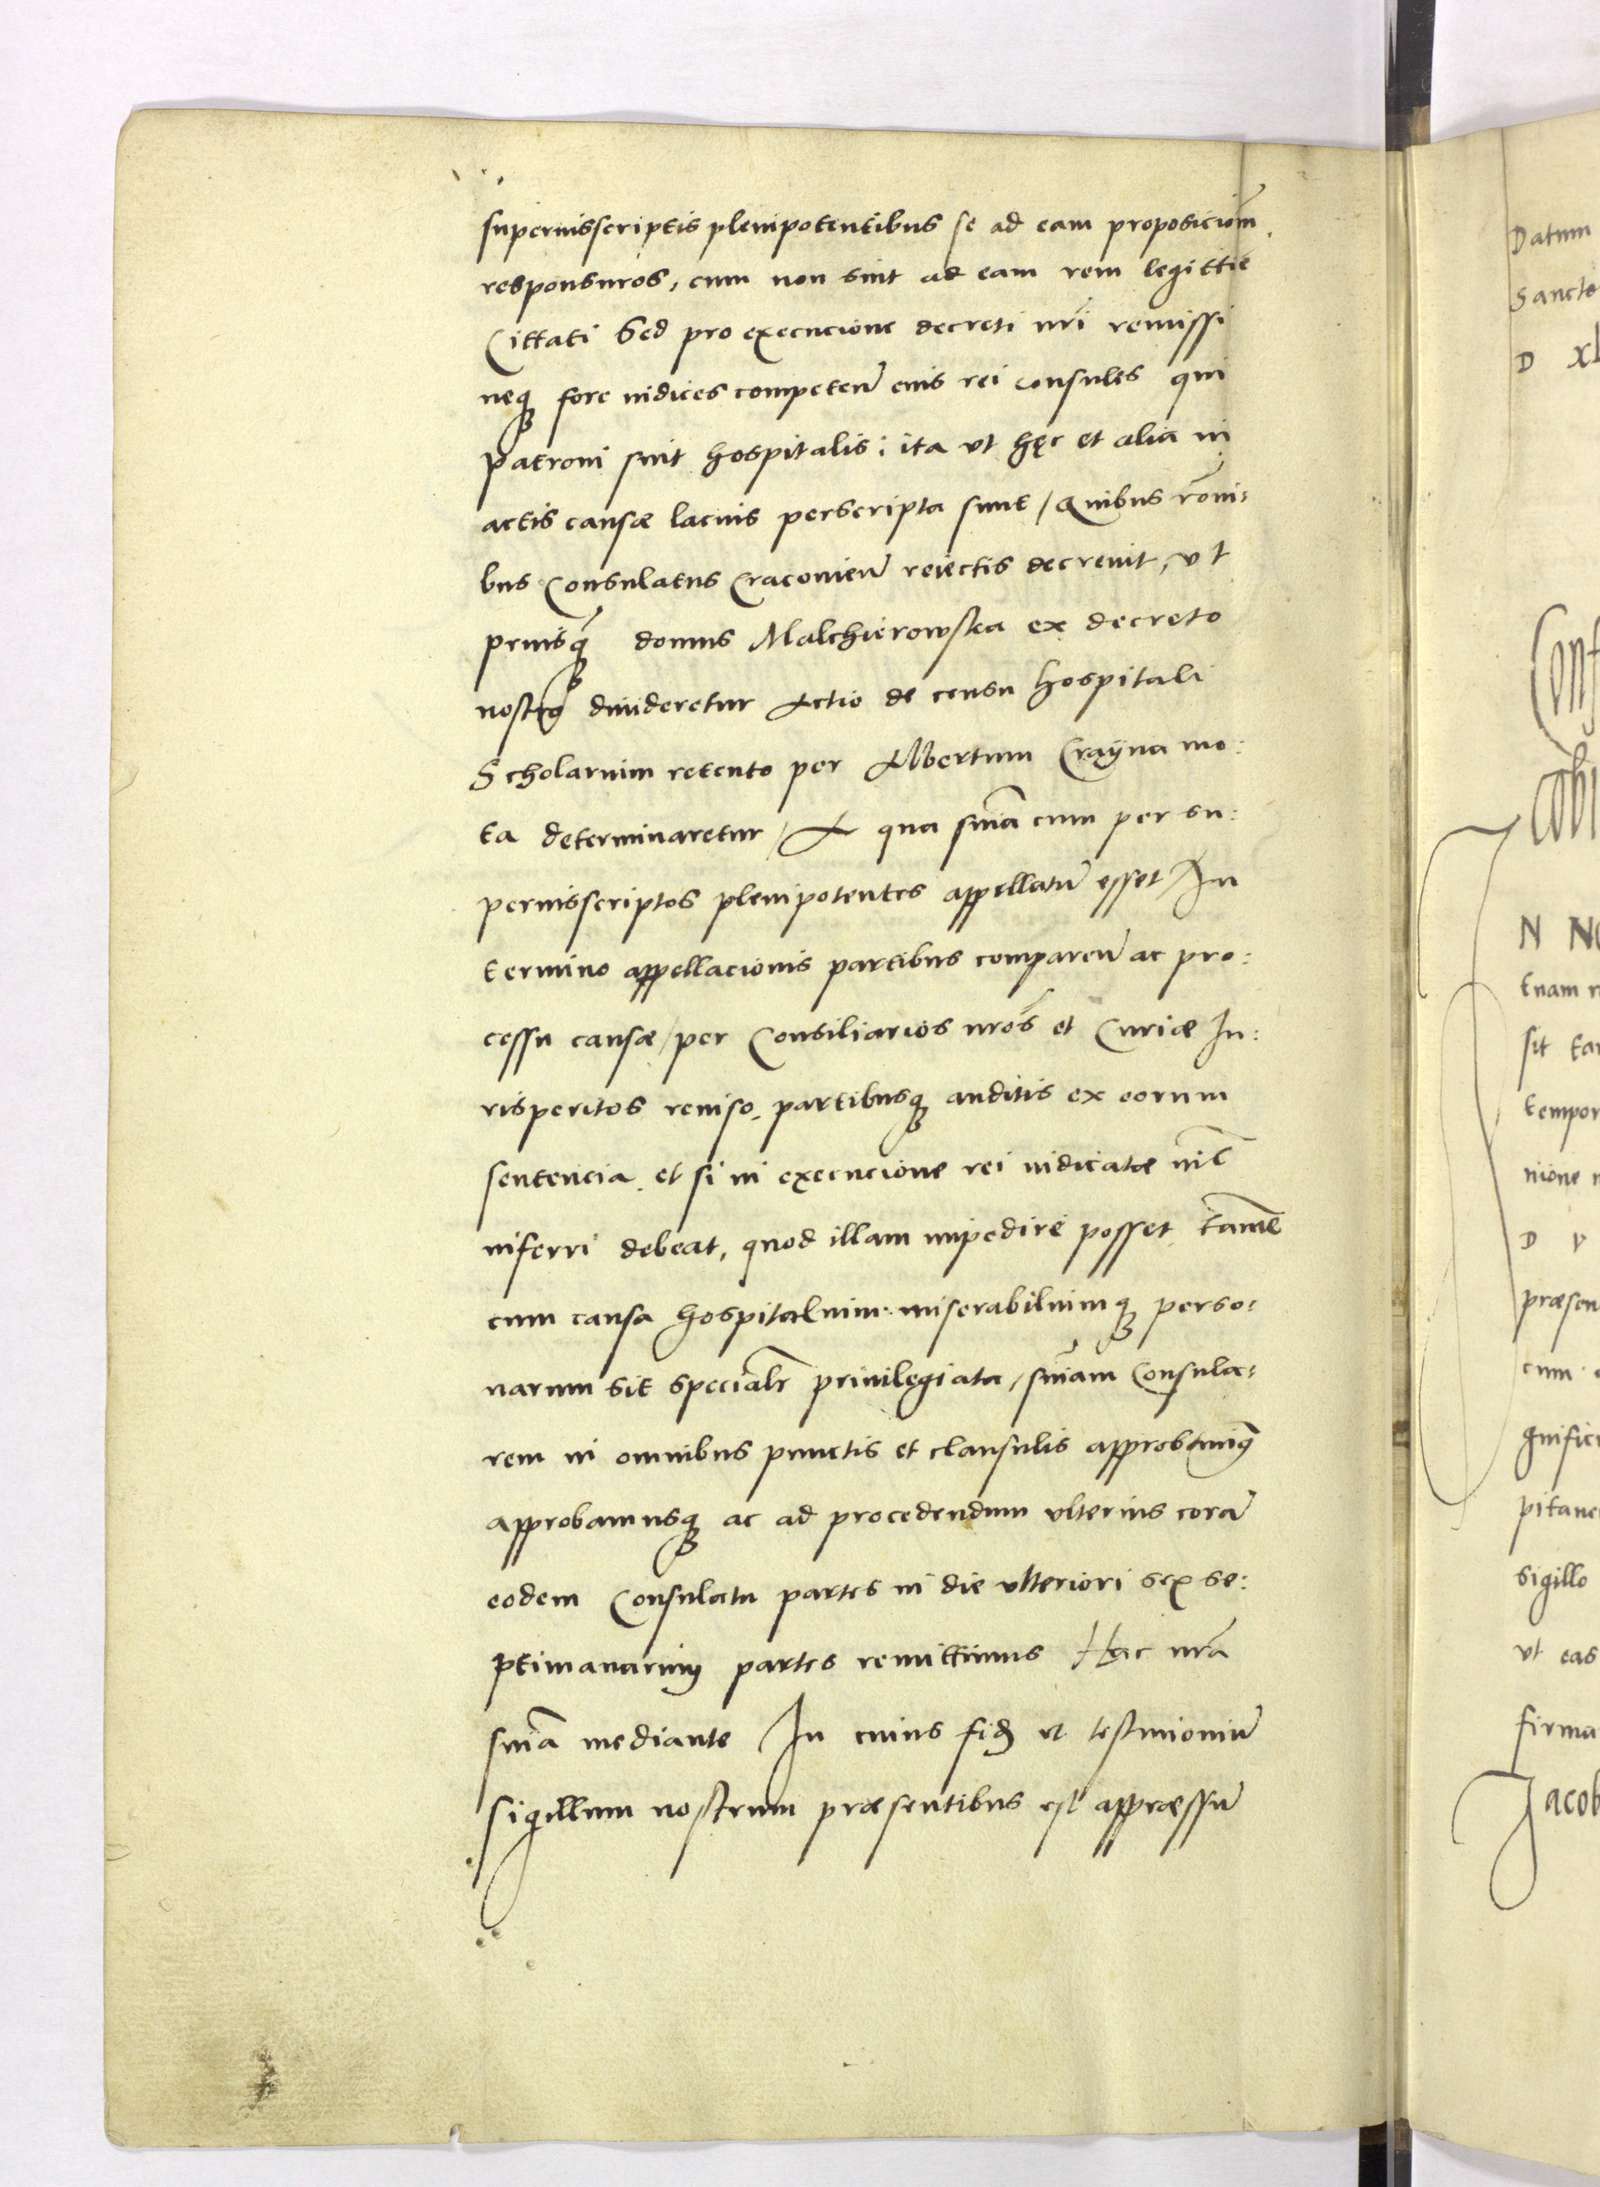 superius scriptis plenipotentibus se ad eam proposiciom̃
responsuros, cum non sint ad eam rem legittiẽ
Cittati Sed pro execucione decreti nr̃i remissi
neqꝫ fore iudices competeñ eius rei consules qui
patroni sint hospitalis: ita vt hęc et alia in
actis causæ lacius perscripta sunt / Quibus rõni-
bus Consulatus Cracovień reiectis decreuit, vt
priusq̃ domus Malchierowska ex decreto
nostro diuideretur Actio de censu hospitali
Scholarium retento per Albertum Crayna mo:
ta determinaretur / A qua sniã cum per su:
perius scriptos plenipotentes appellatũ esset In
termino appellacionis partibus compareñ ac pro:
cessu causæ / per Consiliarios nros̃ et Curiæ Iu:
risperitos reuiso, partibusqꝫ auditis ex eorum
sentencia, et si in execucione rei iudicatæ nil̃
inferri debeat, quod illam impedire posset tamẽ
cum causa hospitalium miserabiliumqꝫ perso:
narum sit specialr̃ priuilegiata, sniãm Consula:
rem in omnibus punctis et clausulis approbauimꝰ
approbamusqꝫ ac ad procedendum vlterius corã
eodem Consulatu partes in die vlteriori sex se:
ptimanarum partes remittimus Hac nrã
sniã mediante In cuius fidẽ et testimoniũ
sigillum nostrum præsentibus est appræssũ
Datum
Sancto
D xl
Conf
N NO
tuam
sit
tempor
nione
D
præsen
cum
gnifici
pitane
sigillo
vt eas
firma
Jacob